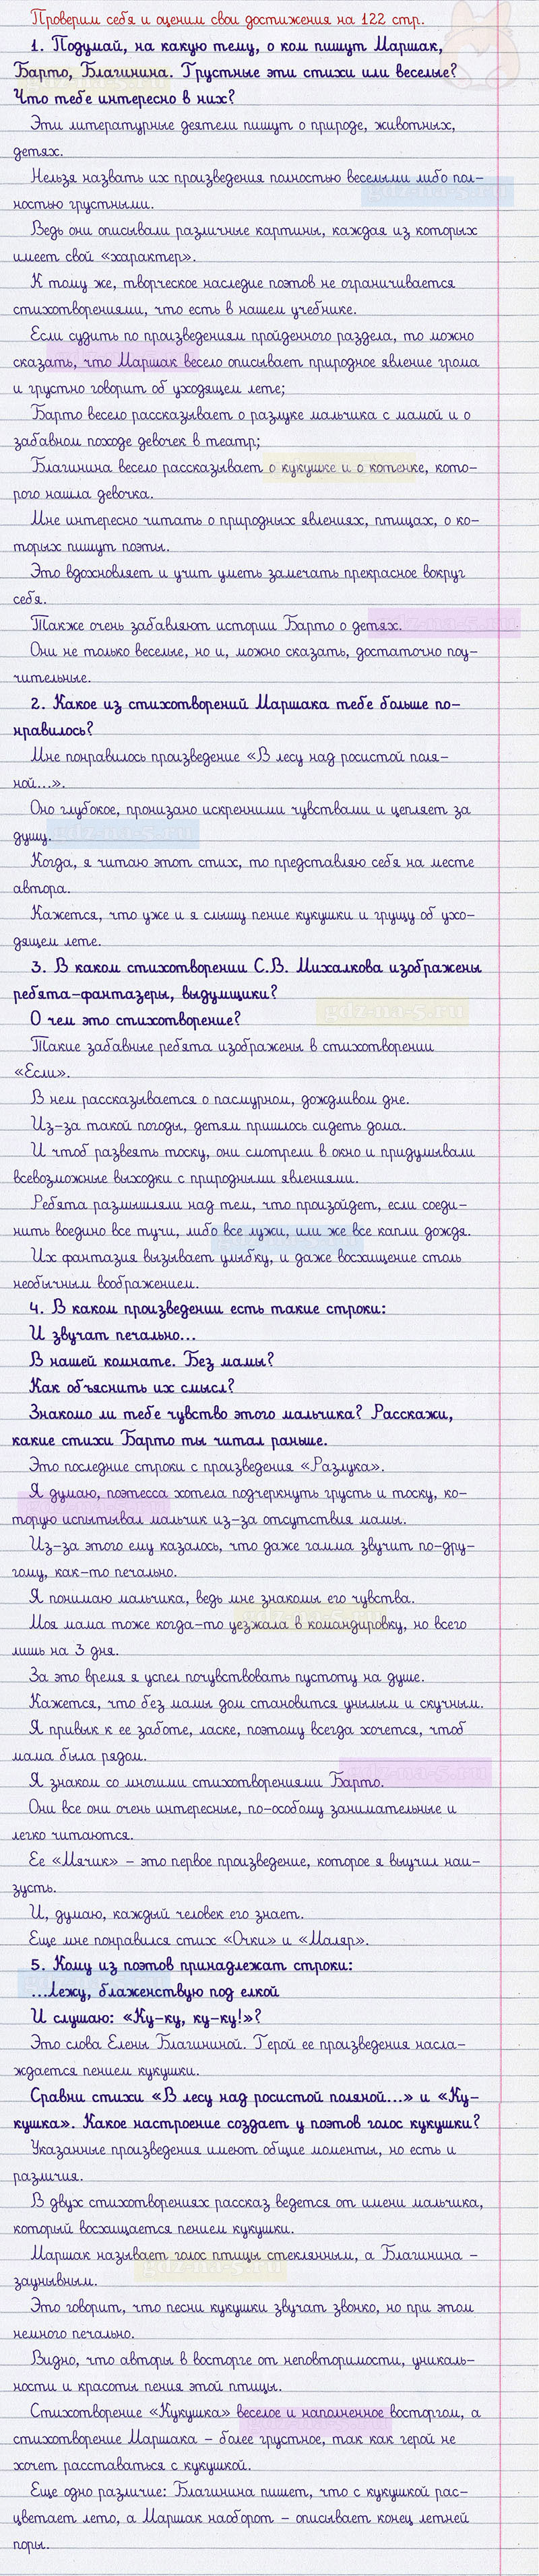 Проверим себя и оценим свои достижения на 122 стр.
1. Подумай, на какую тему, о ком пишут Маршак,
Барто, Благинина. Грустные эти стихи или веселые?
Что тебе интересно в них?
Эти литературные деятели пишут о природе, животных,
детях.
Нельзя назвать их произведения полностью веселыми либо пол-
ностью грустными.
Ведь они описывали различные картины, каждая из которых
имеет свой «характер».
К тому же, творческое наследие поэтов не ограничивается
стихотворениями, что есть в нашем учебнике.
Если судить по произведениям пройденного раздела, то можно
сказать, что Маршак весело описывает природное явление грома
и грустно говорит об уходящем лете;
Барто весело рассказывает о разлуке мальчика с мамой и о
забавном походе девочек в театр;
Благинина весело рассказывает о кукушке и о котенке, кото-
рого нашла девочка.
Мне интересно читать о природных явлениях, птицах, о ко-
торых пишут поэты.
Это вдохновляет и учит уметь замечать прекрасное вокруг
себя.
Также очень забавляют истории Барто о детях.
Они не только веселые, но и, можно сказать, достаточно поу-
чительные.
2. Какое из стихотворений Маршака тебе больше по-
нравилось?
Мне понравилось произведение «В лесу над росистой поля-
ной...».
Оно глубокое, пронизано искренними чувствами и цепляет за
душу.
gdz-na-5.ru
Когда, я читаю этот стих, то представляю себя на месте
автора.
Кажется, что уже и я слышу пение кукушки и грущу об ухо-
дящем лете.
3. В каком стихотворении С.В. Михалкова изображены
ребята-фантазеры, выдумщики?
gdz-na-5.ru
О чем это стихотворение?
Такие забавные ребята изображены в стихотворении
«Если».
В нем рассказывается о пасмурном, дождливом дне.
Из-за такой погоды, детям пришлось сидеть дома.
И чтоб развеять тоску, они смотрели в окно и придумывали
всевозможные выходки с природными явлениями.
Ребята размышляли над тем, что произойдет, если соеди-
нить воедино все тучи, либо все лужи, или же все капли дождя.
Их фантазия вызывает улыбку, и даже восхищение столь
необычным воображением.
4. В каком произведении есть такие строки:
И звучат печально...
В нашей комнате. Без мамы?
Как объяснить их смысл?
Знакомо ли тебе чувство этого мальчика? Расскажи,
какие стихи Барто ты читал раньше.
Это последние строки с произведения «Разлука».
Я думаю, поэтесса хотела подчеркнуть грусть и тоску, ко-
торую испытывал мальчик из-за отсутствия мамы.
Из-за этого ему казалось, что даже гамма звучит по-дру-
гому, как-то печально.
Я понимаю мальчика, ведь мне знакомы его чувства.
Моя мама тоже когда-то уезжала в командировку, но всего
лишь на 3 дня.
За это время я успел почувствовать пустоту на душе.
Кажется, что без мамы дом становится унылым и скучным.
Я привык к ее заботе, ласке, поэтому всегда хочется, чтоб
мама была рядом.
Я знаком со многими стихотворениями Барто.
Они все они очень интересные, по-особому занимательные и
легко читаются.
Ее «Мячик» – это первое произведение, которое я выучил наи-
зусть.
И, думаю, каждый человек его знает.
Еще мне понравился стих «Очки» и «Маляр».
5. Кому из поэтов принадлежат строки:
...Лежу, блаженствую под елкой
И слушаю: «Ку-ку, ку-ку!»?
Это слова Елены Благининой. Герой ее произведения насла-
ждается пением кукушки.
Сравни стихи «В лесу над росистой поляной...» и «Ку-
кушка». Какое настроение создает у поэтов голос кукушки?
Указанные произведения имеют общие моменты, но есть и
различия.
В двух стихотворениях рассказ ведется от имени мальчика,
который восхищается пением кукушки.
Маршак называет голос птицы стеклянным, а Благинина –
заунывным.
Это говорит, что песни кукушки звучат звонко, но при этом
немного печально.
Видно, что авторы в восторге от неповторимости, уникаль-
ности и красоты пения этой птицы.
Стихотворение «Кукушка» веселое и наполненное восторгом, а
стихотворение Маршака – более грустное, так как герой не
хочет расставаться с кукушкой.
Еще одно различие: Благинина пишет, что с кукушкой рас-
цветает лето, а Маршак наоборот – описывает конец летней
поры.